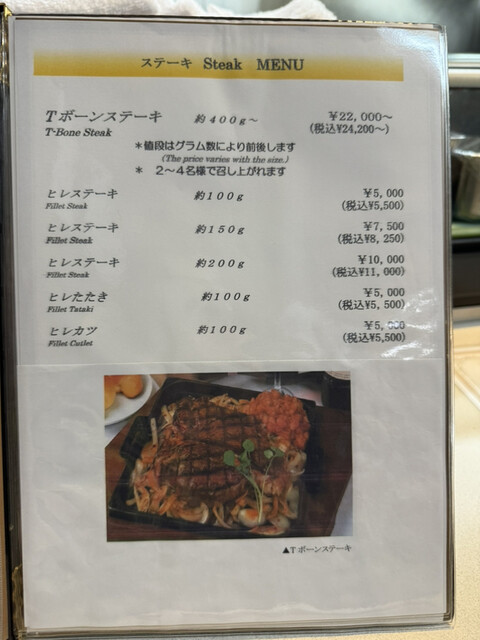 ステーキ Steak MENU
Tボーンステーキ 約400g～ ￥22,000～
T-Bone Steak (税込¥24,200～)
＊値段はグラム数により前後します
(The price varies with the size.)
＊ 2～4名様で召し上がれます
ヒレステーキ 約100g ￥5,000
Fillet Steak (税込¥5,500)
ヒレステーキ 約150g ￥7,500
Fillet Steak (税込¥8,250)
ヒレステーキ 約200g ￥10,000
Fillet Steak (税込¥11,000)
ヒレたたき 約100g ￥5,000
Fillet Tataki (税込¥5,500)
ヒレカツ 約100g ￥5,000
Fillet Cutlet (税込¥5,500)
▲Tボーンステーキ